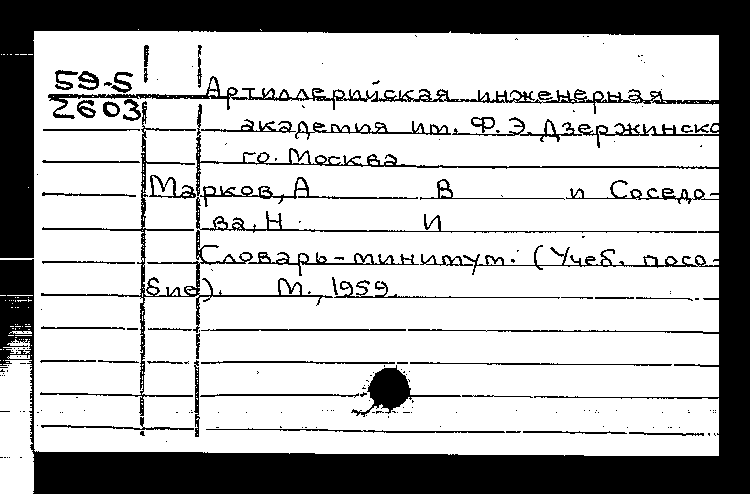 59-5
2603
Артиллерийская инженерная
академия им. Ф.Э. Дзержинско
го. Москва
Марков, А В и Соседо-
ва, Н И
Словарь-минимум. (Учеб. посо-
бие). М., 1959.